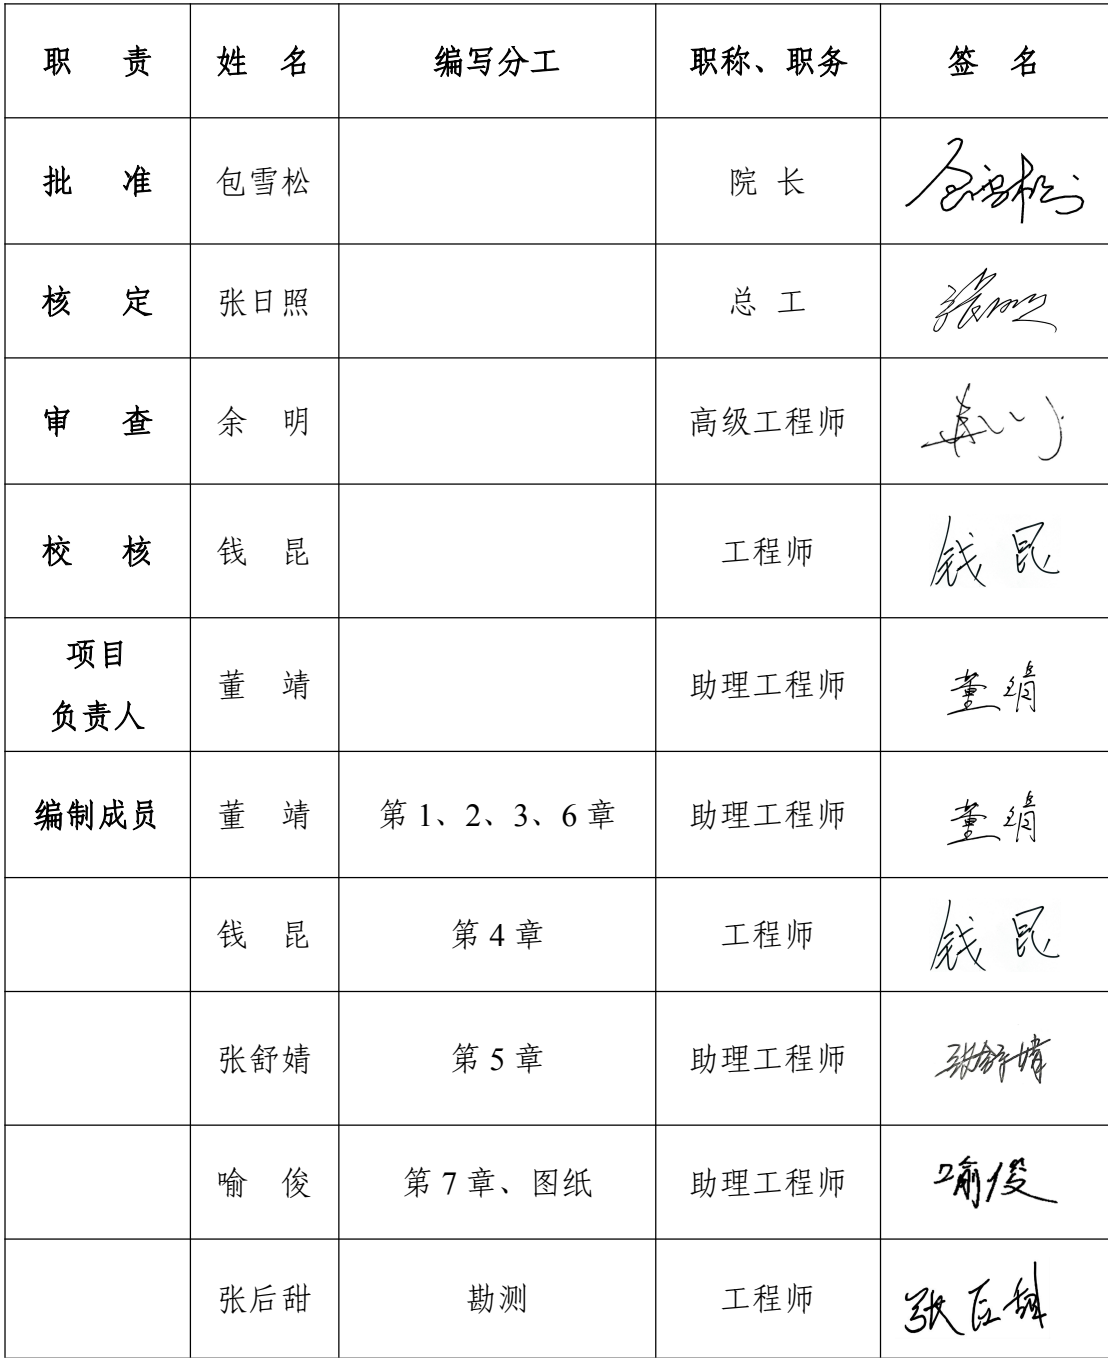 职 责 姓 名 编写分工 职称、职务 签 名
批 准 包雪松 院 长 包雪松
核 定 张日照 总 工
审 查 余 明 高级工程师
校 核 钱 昆 工程师 钱昆
项目
负责人 董 靖 助理工程师 董靖
编制成员 董 靖 第1、2、3、6章 助理工程师 董靖
钱 昆 第4章 工程师 钱昆
张舒婧 第5章 助理工程师 张舒婧
喻 俊 第7章、图纸 助理工程师 喻俊
张后甜 勘测 工程师 张后甜